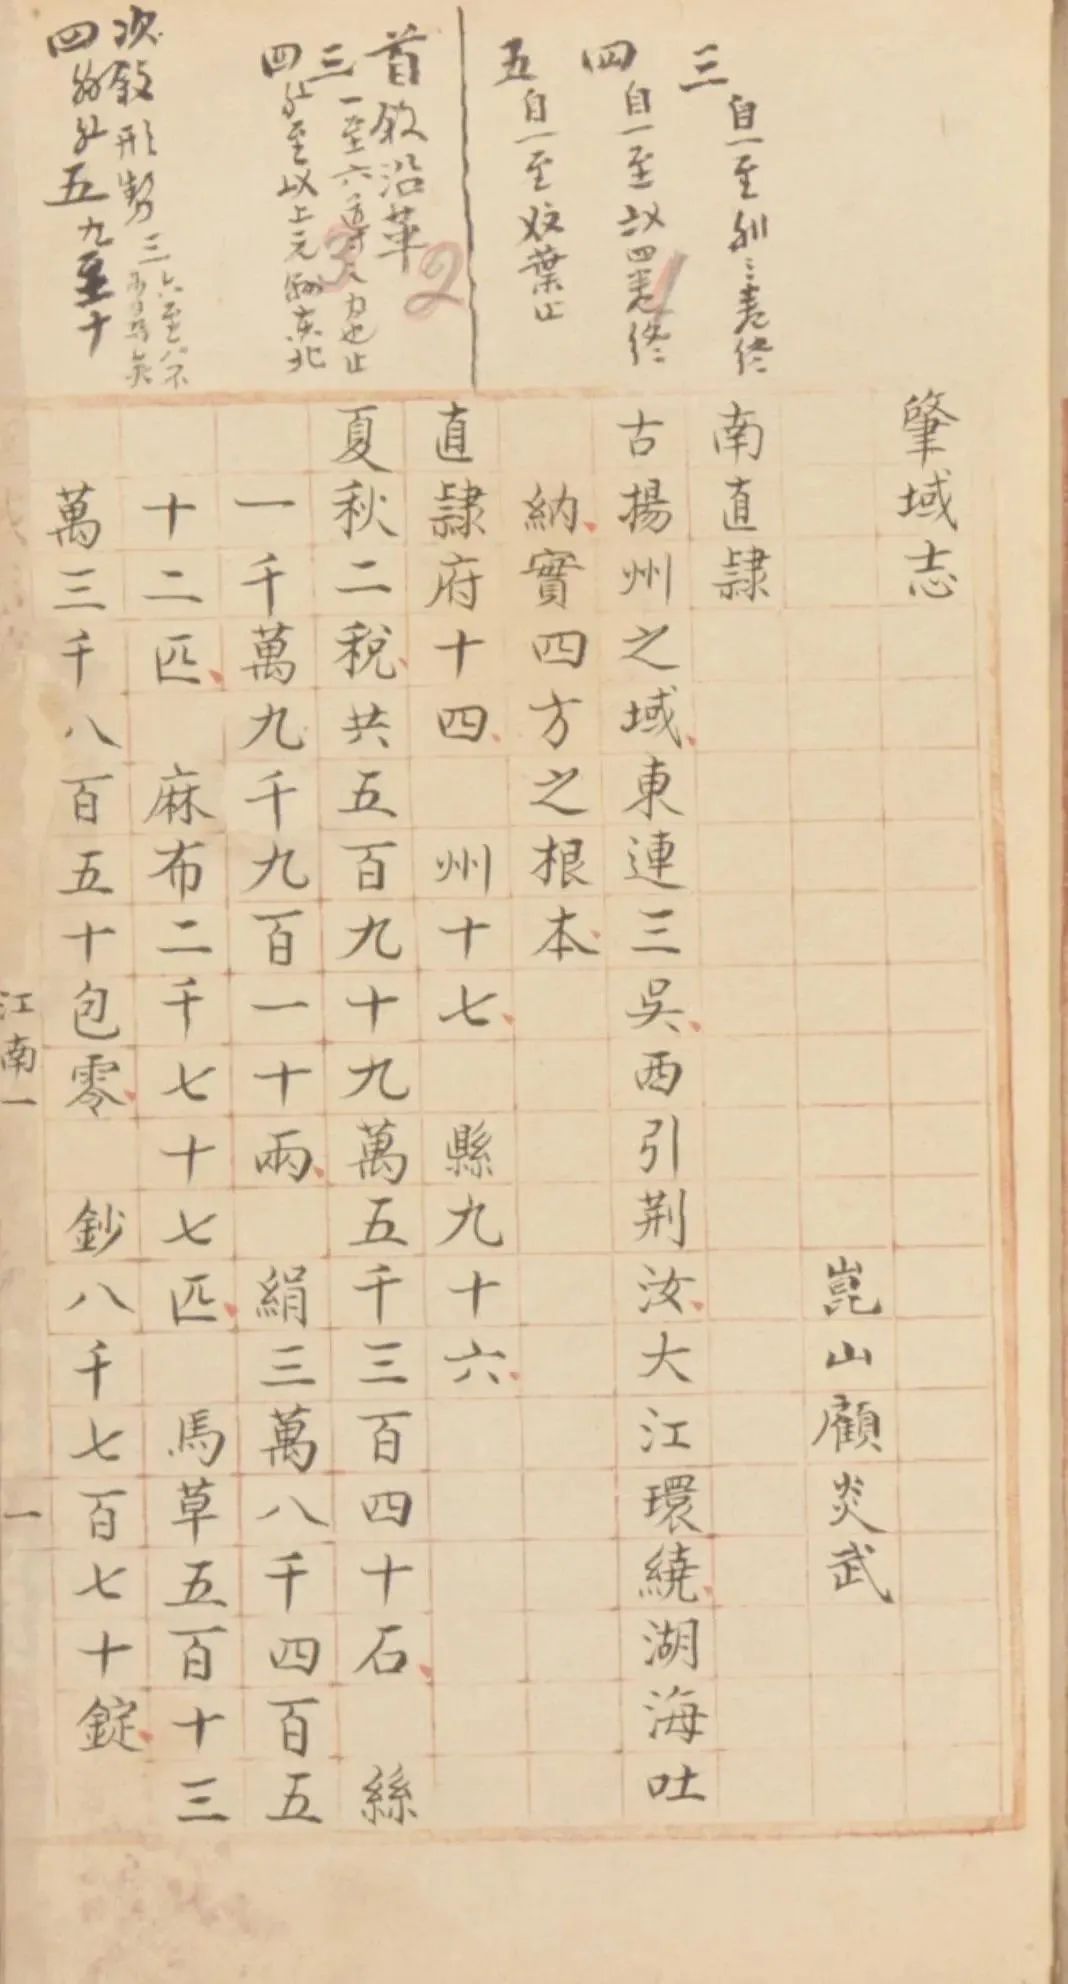 三 自一至
四 自一至
五 自一至 葉止
首敘沿革
三 一至六
四 至以上元 東北
次敘形勢 三 六至八
四 五 九至十
2
肇域志
崑山顧炎武
南直隸
古揚州之域東連三吳西引荆汝大江環繞湖海吐
納實四方之根本
直隸府十四 州十七 縣九十六
夏秋二稅共五百九十九萬五千三百四十石 絲
一千萬九千九百一十兩 絹三萬八千四百五
十二匹 麻布二千七十七匹 馬草五百十三
萬三千八百五十包零 鈔八千七百七十錠
江南一
一